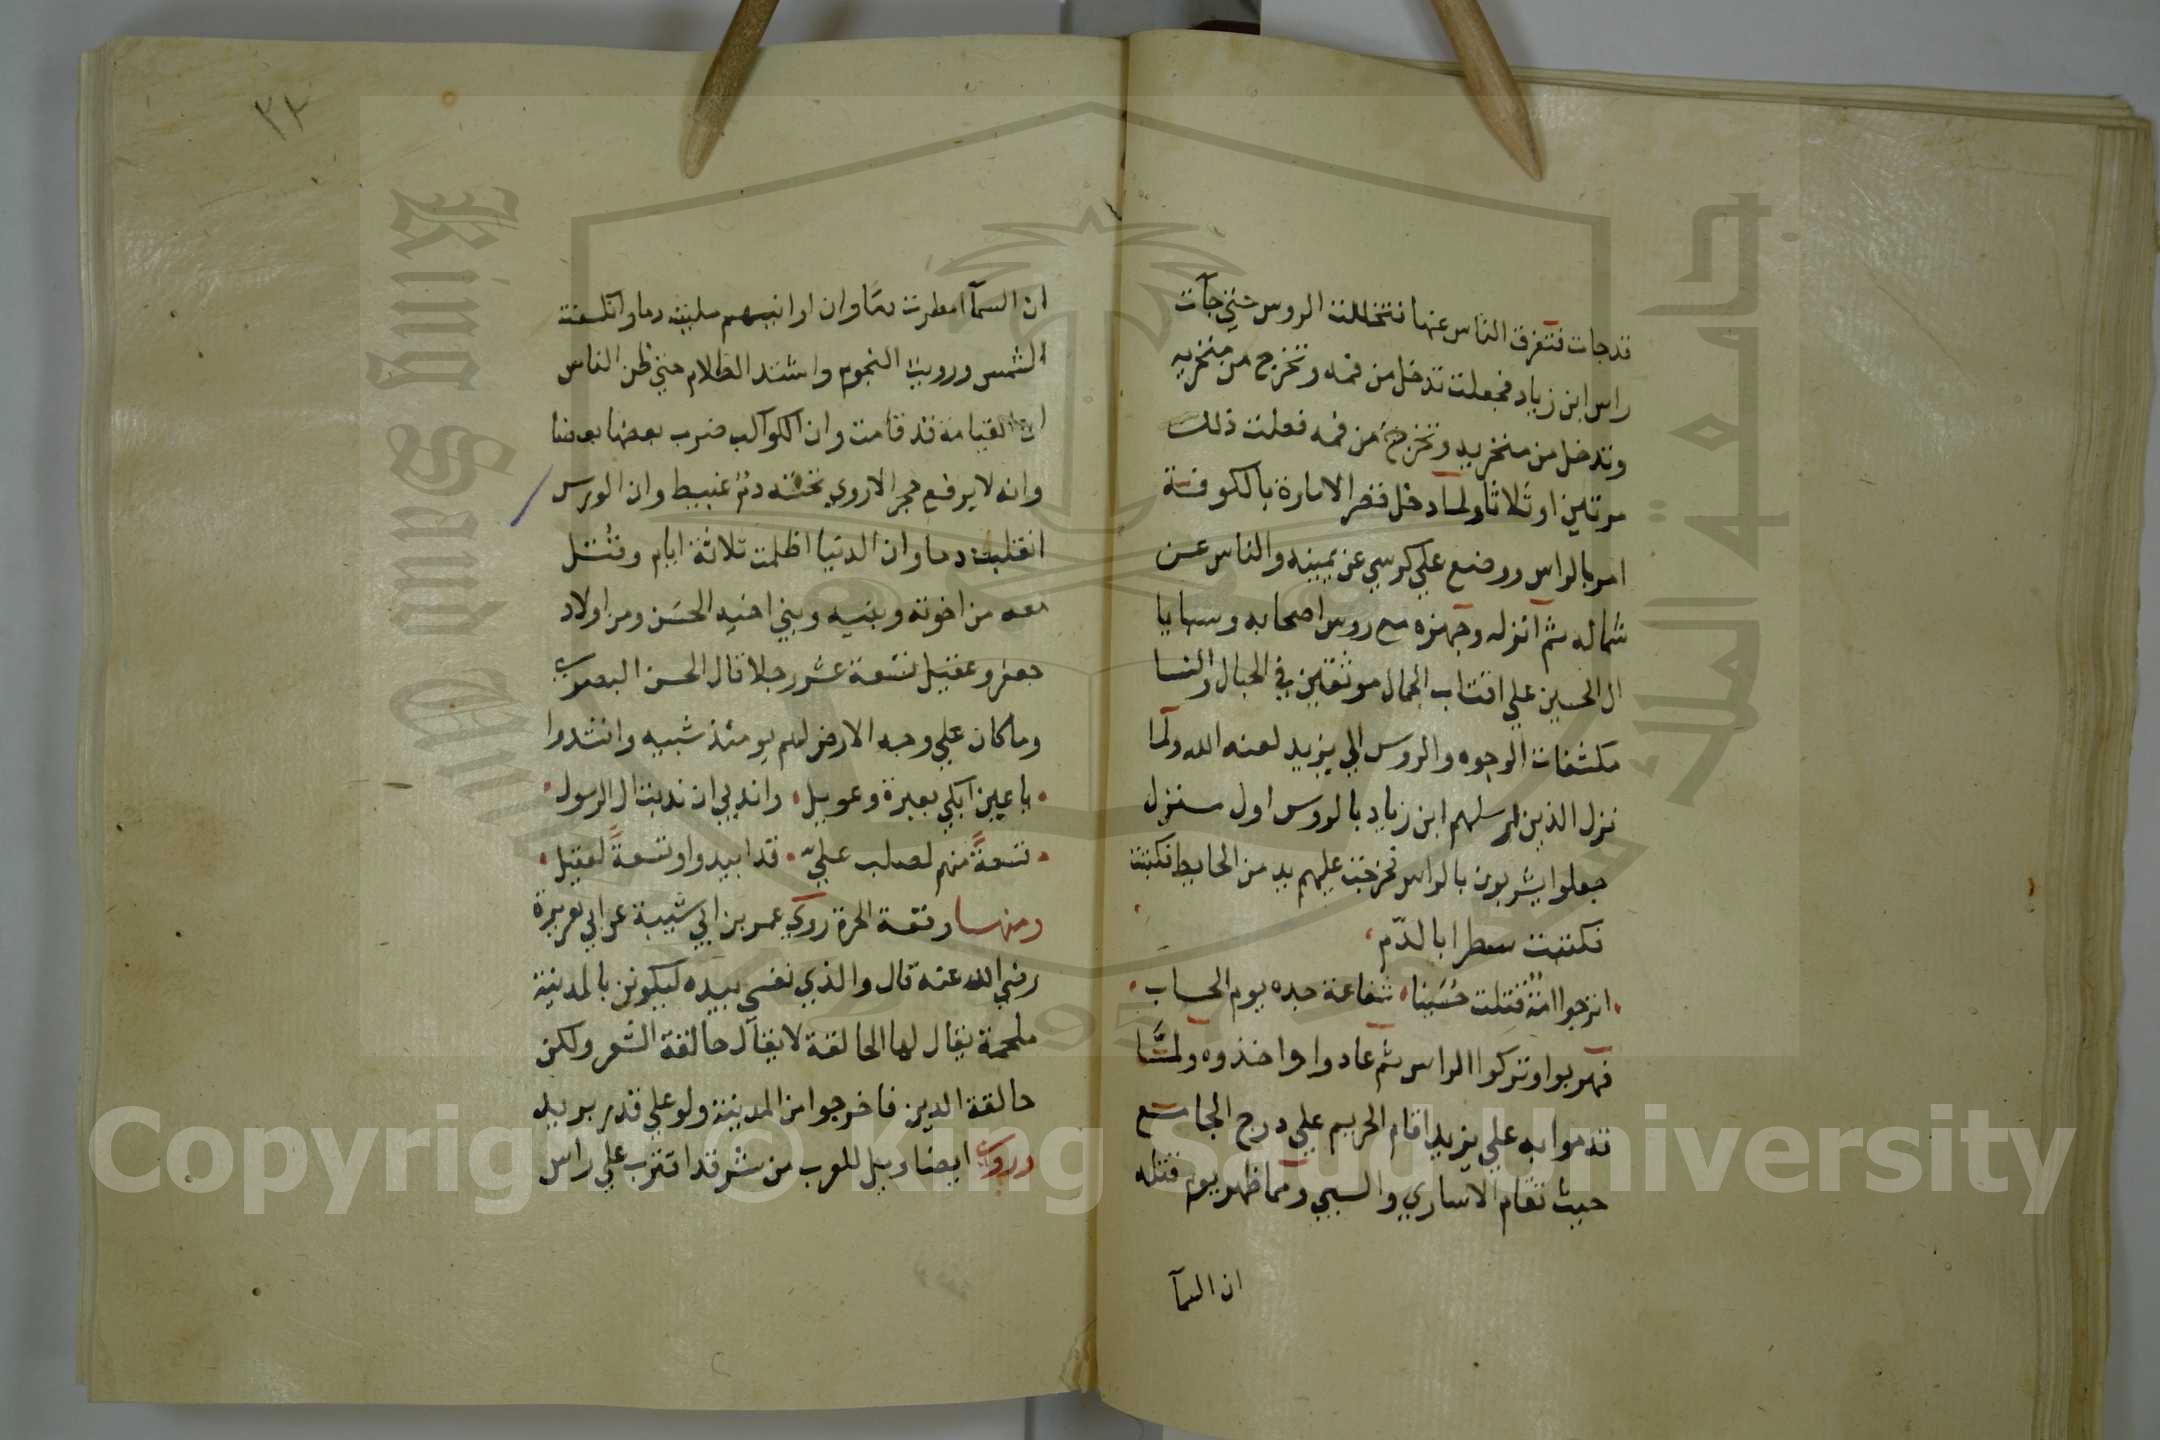 قد جات فتفرق الناس عنها فتخللت الروس حتي جآت
راس ابن زياد فجعلت تدخل من فمه وتخرج من منخريه
وتدخل من منخريه وتخرج من فمه فعلت ذلك
مرتين او ثلاثا ولما دخل قصر الامارة بالكوفة
امر بالراس ووضع علي كرسي عن يمينه والناس عن
شماله ثم انزله وجهزه مع روس اصحابه وسبايا
ال الحسين علي اقتاب الجمال موثقين في الحبال والنسا
مكشفات الوجوه والروس الي يزيد لعنه الله ولما
نزل الذين ارسلهم ابن زياد بالروس اول منزل
جعلوا يشربون بالراس فخرجت عليهم يد من الحايط فكتبت
فكتبت سطرا بالدم
اترجوا امة قتلت حسينا شفاعة جده يوم الحساب
فهربوا وتركوا الراس ثم عادوا واخذوه ولما
قدموا به علي يزيد اقام الحريم علي درج الجامع
حيث تقام الاساري والسبي ومما ظهر يوم قتله
ان السمآ
٣٢
ان السمآ امطرت دما وان اوانيهم مليت دما وانكسفت
الشمس ورويت النجوم واشتد الظلام حتي ظن الناس
ان القيامة قد قامت وان الكواكب ضرب بعضها بعضا
وانه لا يرفع حجر الا روي تحته دم عبيط وان الورس
انقلبت دما وان الدنيا اظلمت ثلاثة ايام وقتل
معه من اخوته وبنيه وبني اخيه الحسن ومن اولاد
جعفر وعقيل تسعة عشر رجلا قال الحسن البصري
وما كان علي وجه الارض لهم يومئذ شبيه وانشدوا
يا عين ابكي بعبرة وعويل واندبي ان ندبت ال الرسول
تسعة منهم لصلب علي قد ابيدوا وتسعة لعقيل
ومنها وقعة الحرة روي عمر بن ابي شيبة عن ابي هريرة
رضي الله عنه قال والذي نفسي بيده ليكونن بالمدينة
ملحمة يقال لها الحالقة لا يقال حالقة الشعر ولكن
حالقة الدين فاخرجوا من المدينة ولو علي قدر بريد
وروي ايضا ويل للعرب من شر قد اقترب علي راس
King Saud University
جامعة الملك
1957
Copyright © King Saud University